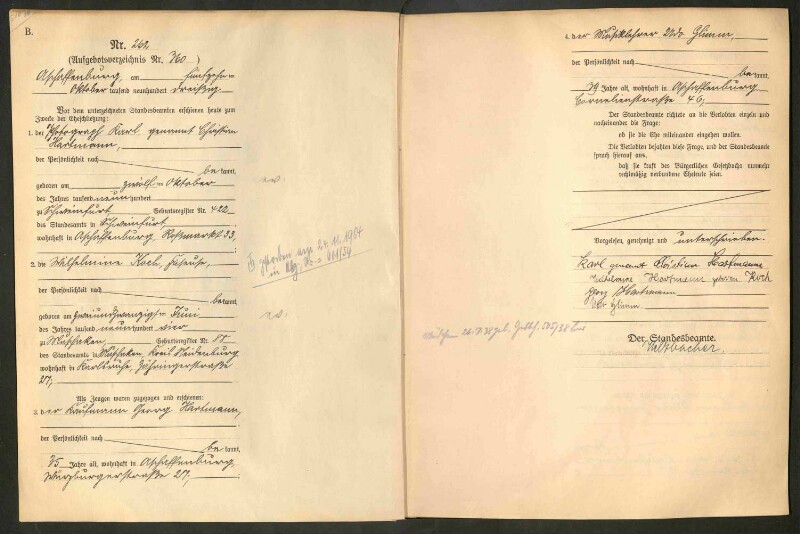 B.
Nr. 262
(Aufgebotsverzeichnis Nr. 360)
Aschaffenburg, am fünfzehn
Oktober tausend neunhundert dreißig
Vor dem unterzeichneten Standesbeamten erschienen heute zum
Zwecke der Eheschließung:
1. der Photograph Karl genannt Christian
Hartmann,
der Persönlichkeit nach
bekannt,
geboren am zwölf Oktober
des Jahres tausend neunhundert
zu Schweinfurt Geburtsregister Nr. 422
des Standesamts in Schweinfurt
wohnhaft in Aschaffenburg Roßmarkt 33;
2. die Wilhelmine Koch,
der Persönlichkeit nach
bekannt,
geboren am zweiundzwanzig Juni
des Jahres tausend neunhundert vier
zu Geburtsregister Nr.
des Standesamts in Kreis Neidenburg
wohnhaft in Karlsruhe, Zähringerstraße
27;
Als Zeugen waren zugezogen und erschienen:
3. der Kaufmann Georg Hartmann,
der Persönlichkeit nach
bekannt,
35 Jahre alt, wohnhaft in Aschaffenburg
Würzburgerstraße 27;
ev.
gestorben 24.11.1984
in
ev.
4. der Musiklehrer Udo Glimm,
der Persönlichkeit nach
bekannt,
39 Jahre alt, wohnhaft in Aschaffenburg
Cornelienstraße 46;
Der Standesbeamte richtete an die Verlobten einzeln und
nacheinander die Frage:
ob sie die Ehe miteinander eingehen wollen.
Die Verlobten bejahten diese Frage, und der Standesbeamte
sprach hierauf aus,
daß sie kraft des Bürgerlichen Gesetzbuchs nunmehr
rechtmäßig verbundene Eheleute seien.
Vorgelesen, genehmigt und unterschrieben.
Karl genannt Christian Hartmann
Wilhelmine Hartmann geborene Koch
Georg Hartmann
Udo Glimm
Der Standesbeamte.